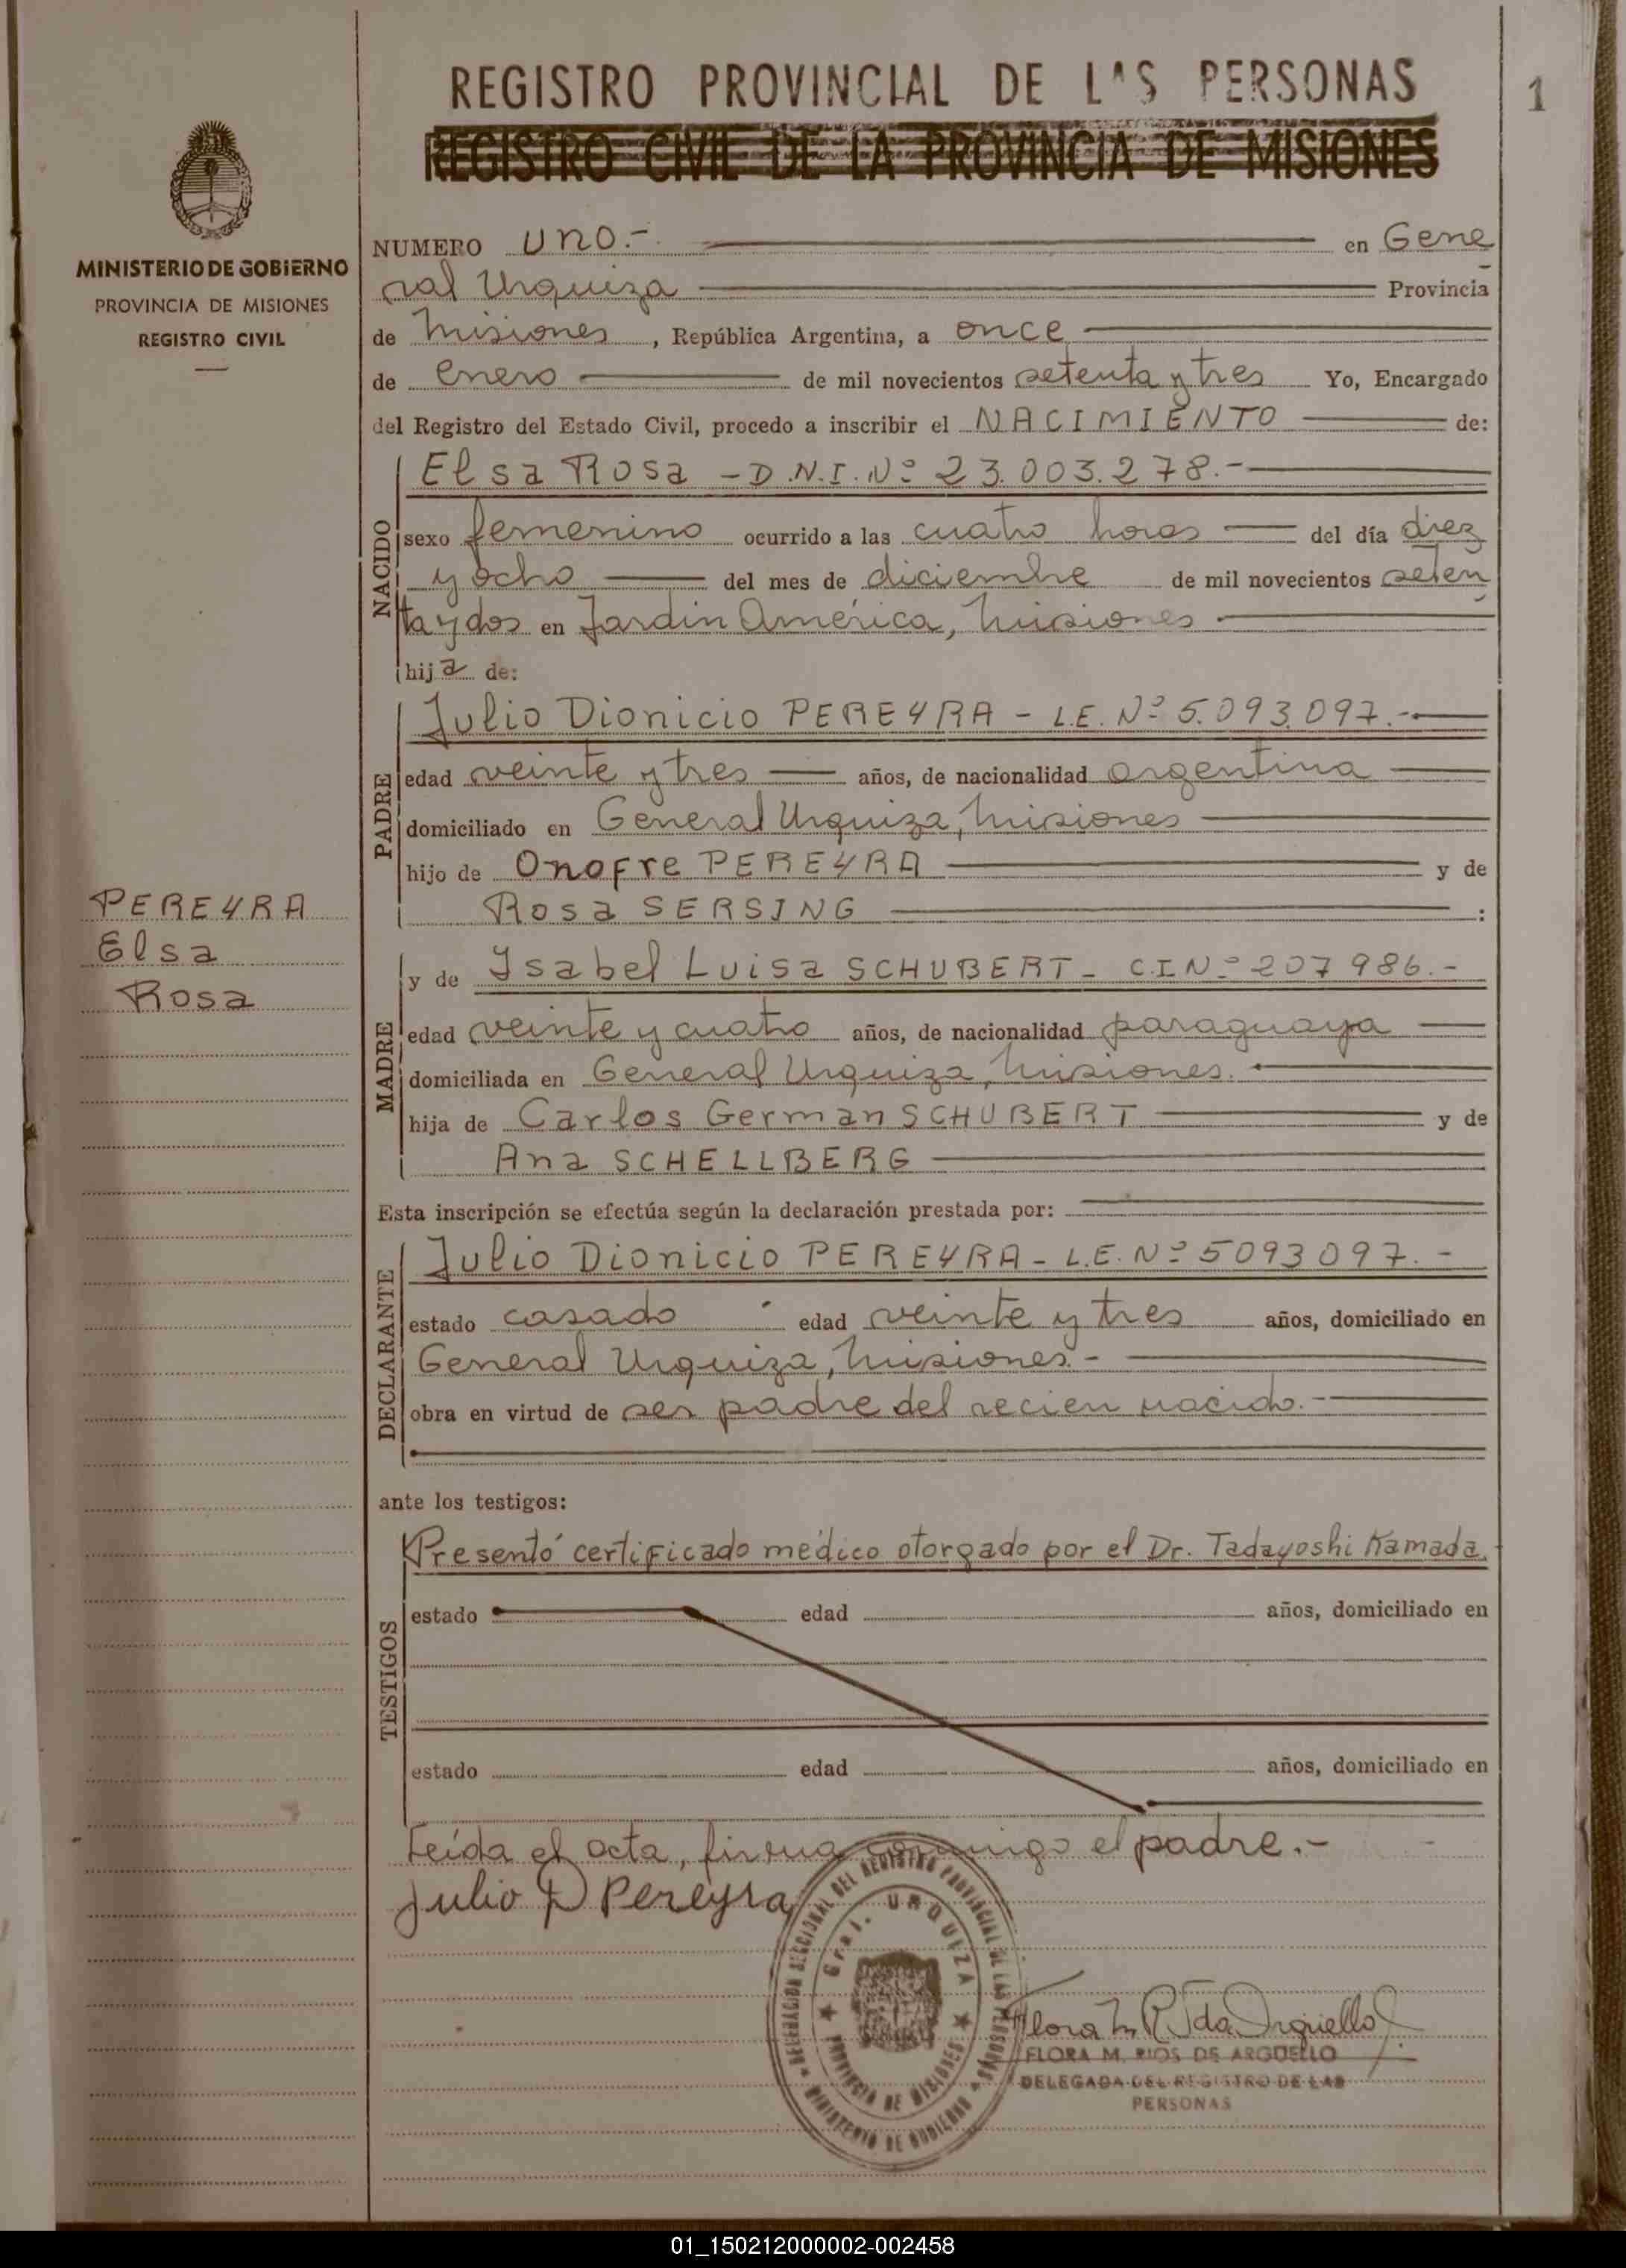 REGISTRO PROVINCIAL DE LAS PERSONAS
1
REGISTRO CIVIL DE LA PROVINCIA DE MISIONES
MINISTERIO DE GOBIERNO
PROVINCIA DE MISIONES
REGISTRO CIVIL
NUMERO uno.- en Gene
ral Urquiza Provincia
de Misiones, República Argentina, a once
de enero de mil novecientos setenta y tres Yo, Encargado
del Registro del Estado Civil, procedo a inscribir el NACIMIENTO de:
NACIDO
Elsa Rosa - D.N.I. Nº 23.003.278.-
sexo femenino ocurrido a las cuatro horas del día diez
y ocho del mes de diciembre de mil novecientos seten
ta y dos en Jardín América, Misiones
hija de:
PADRE
Julio Dionicio PEREYRA - L.E. Nº 5.093.097.-
edad veinte y tres años, de nacionalidad argentina
domiciliado en General Urquiza, Misiones
hijo de Onofre PEREYRA y de
Rosa SERSING :
PEREYRA
Elsa
Rosa
MADRE
y de Isabel Luisa SCHUBERT - C.I. Nº 207986.-
edad veinte y cuatro años, de nacionalidad paraguaya
domiciliada en General Urquiza, Misiones.
hija de Carlos German SCHUBERT y de
Ana SCHELLBERG
Esta inscripción se efectúa según la declaración prestada por:
DECLARANTE
Julio Dionicio PEREYRA - L.E. Nº 5093097.-
estado casado edad veinte y tres años, domiciliado en
General Urquiza, Misiones.-
obra en virtud de ser padre del recien nacido.-
ante los testigos:
TESTIGOS
Presentó certificado médico otorgado por el Dr. Tadayoshi Kamada.
estado edad años, domiciliado en
estado edad años, domiciliado en
Leída el acta, firma conmigo el padre.-
Julio D Pereyra
DELEGACION SECCIONAL DEL REGISTRO PROVINCIAL DE LAS PERSONAS
Gral. URQUIZA
PROVINCIA DE MISIONES
MINISTERIO DE GOBIERNO
Flora M. R. de Argüello
FLORA M. RIOS DE ARGÜELLO
DELEGADA DEL REGISTRO DE LAS
PERSONAS
01_150212000002-002458